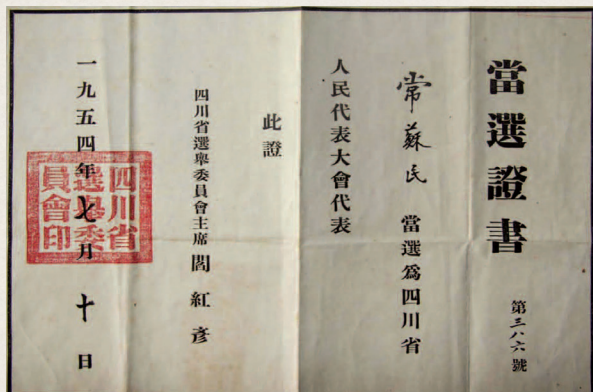 當選證書
第三八六號
常蘇民 當選爲四川省
人民代表大會代表
此證
四川省選舉委員會主席 閻紅彥
一九五四年七月十日
四川省
選舉委
員會印